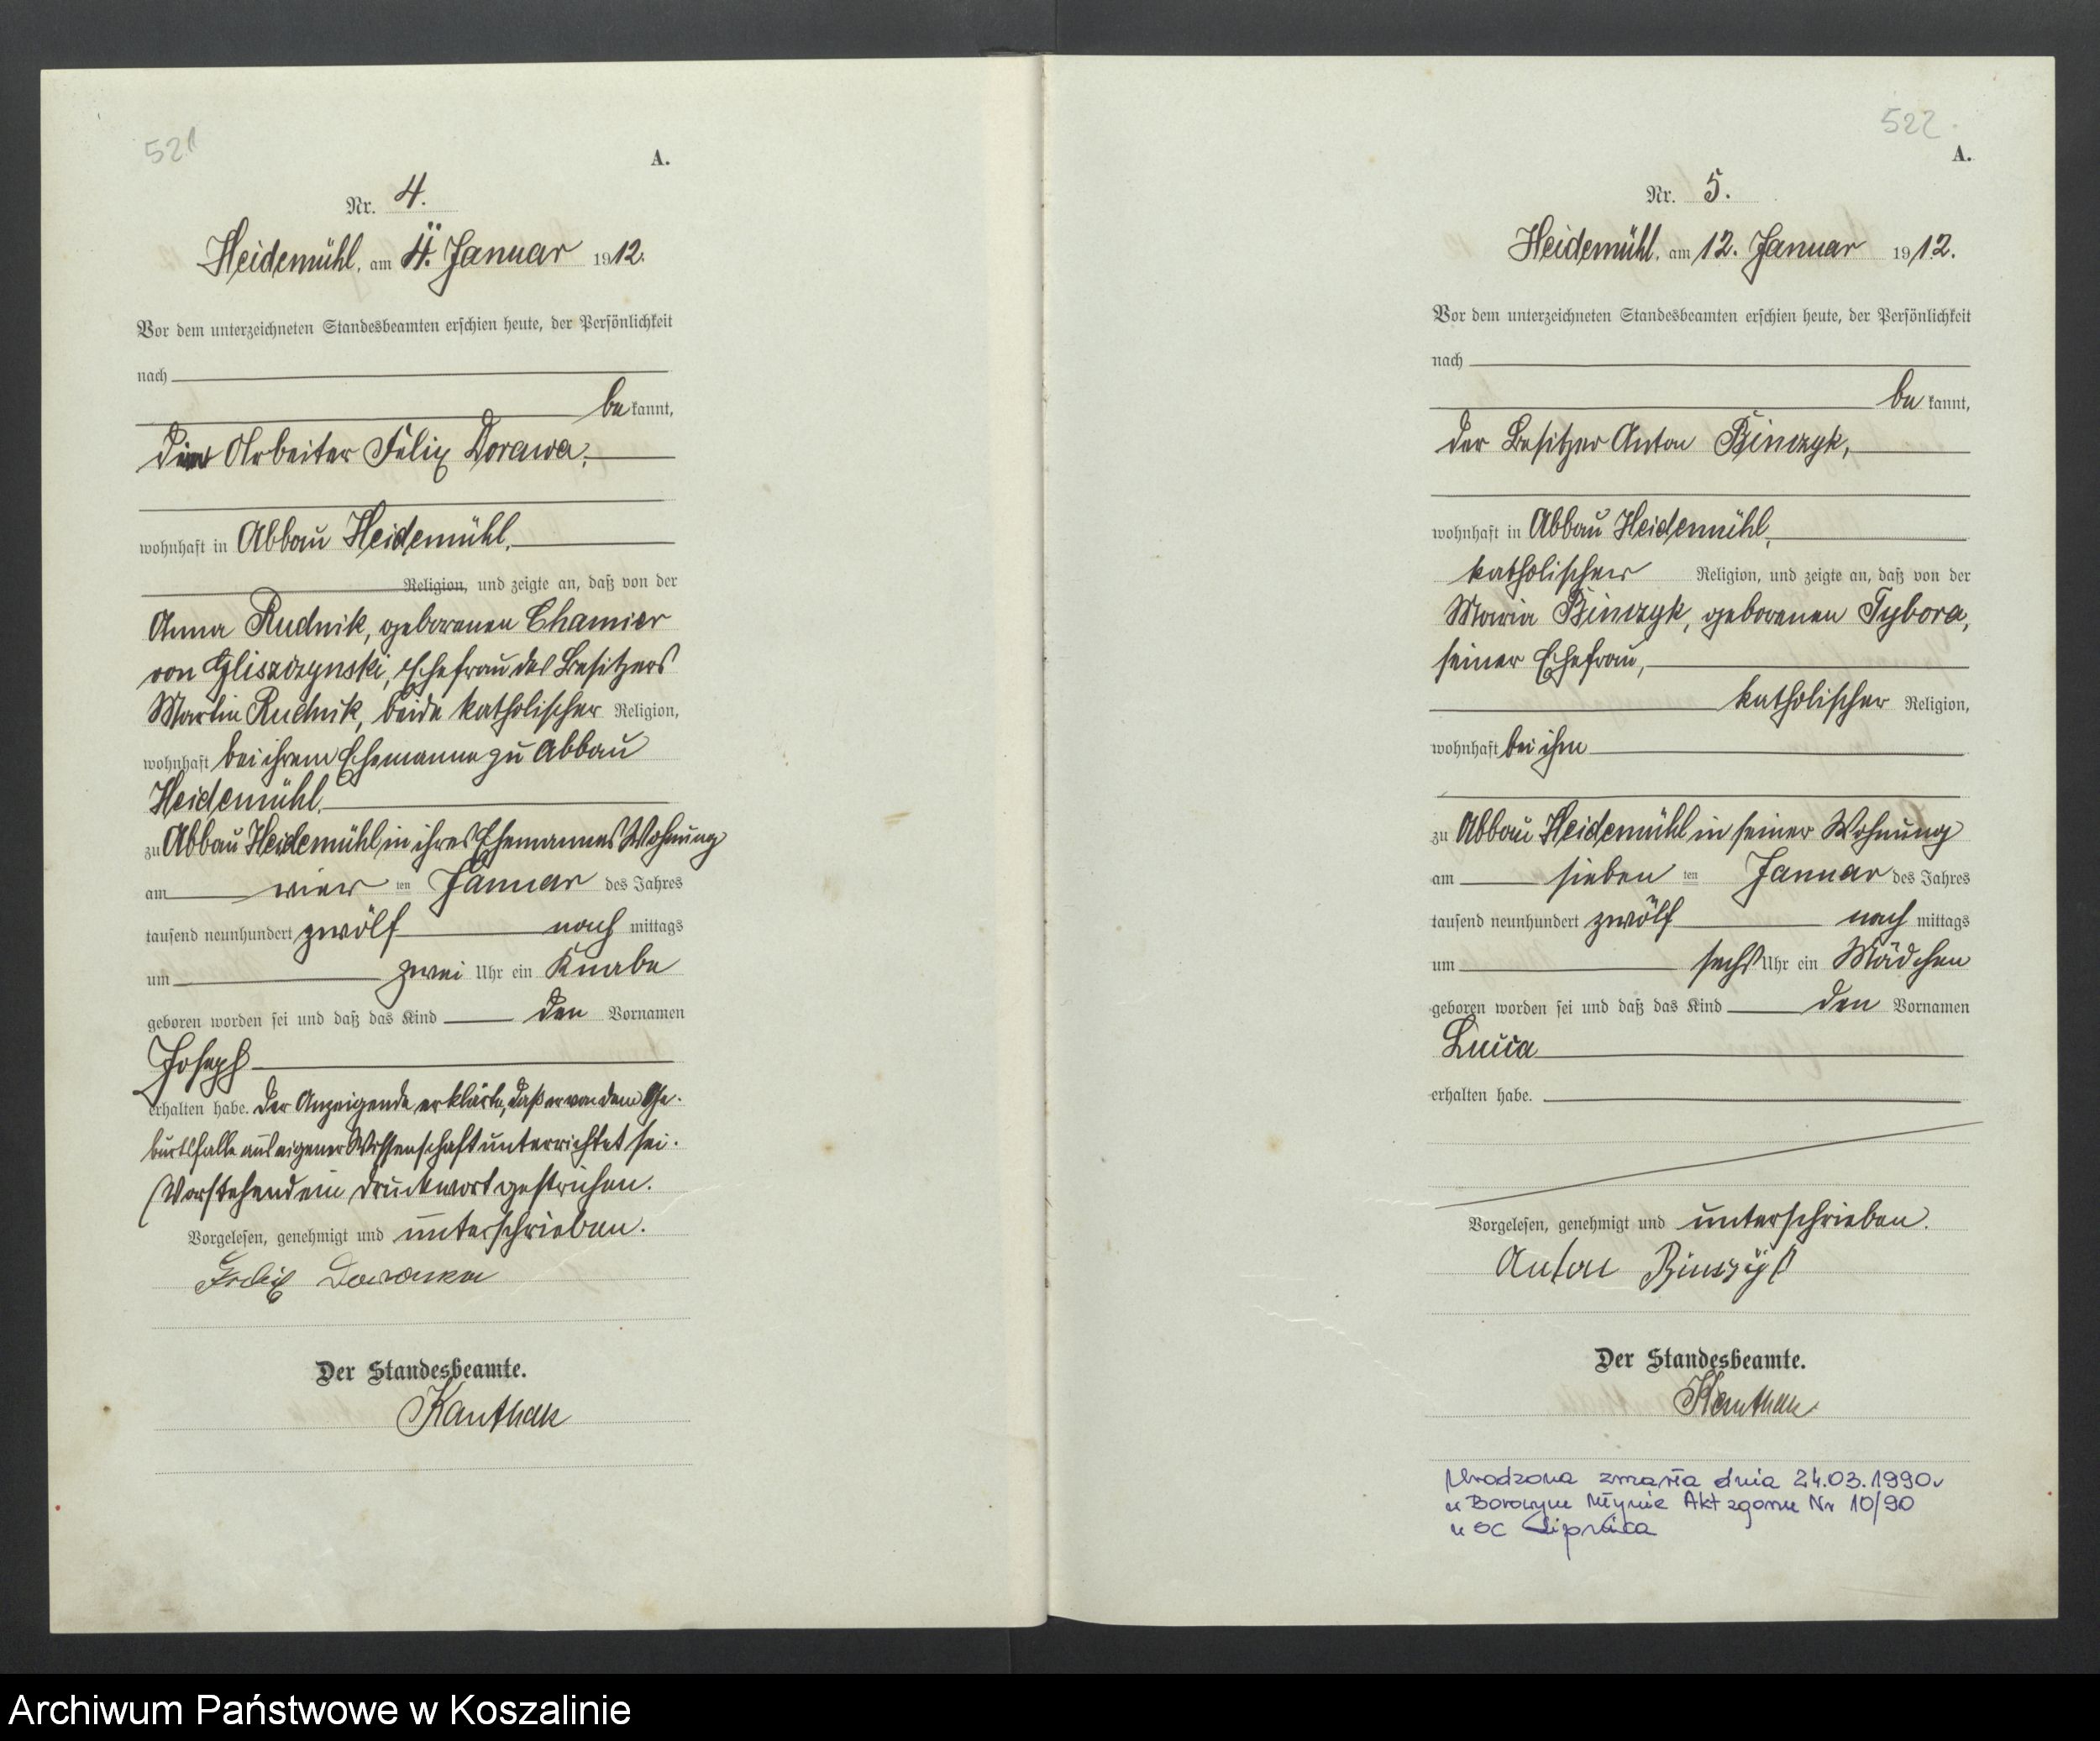 521
A.
Nr. 4.
Heidemühl, am 4. Januar 1912.
Vor dem unterzeichneten Standesbeamten erschien heute, der Persönlichkeit
nach
be kannt,
der Arbeiter Felix Dorawa,
wohnhaft in Abbau Heidemühl,
Religion, und zeigte an, daß von der
Anna Rudnik, geborenen Chamier
von Gliszczynski, Ehefrau des Besitzers
Martin Rudnik, beide katholischer Religion,
wohnhaft bei ihrem Ehemanne zu Abbau
Heidemühl,
zu Abbau Heidemühl in ihres Ehemannes Wohnung
am vier ten Januar des Jahres
tausend neunhundert zwölf nach mittags
um zwei Uhr ein Knabe
geboren worden sei und daß das Kind den Vornamen
Joseph
erhalten habe. Der Anzeigende erklärte, daß er von dem Ge-
burtsfalle aus eigener Wissenschaft unterrichtet sei.
Vorstehend ein Druckwort gestrichen.
Vorgelesen, genehmigt und unterschrieben.
Felix Dorawa
Der Standesbeamte.
Kanthak
522
A.
Nr. 5.
Heidemühl, am 12. Januar 1912.
Vor dem unterzeichneten Standesbeamten erschien heute, der Persönlichkeit
nach
be kannt,
der Besitzer Anton Binczyk,
wohnhaft in Abbau Heidemühl,
katholischer Religion, und zeigte an, daß von der
Maria Binczyk, geborenen Tybora,
seiner Ehefrau,
katholischer Religion,
wohnhaft bei ihm
zu Abbau Heidemühl in seiner Wohnung
am sieben ten Januar des Jahres
tausend neunhundert zwölf nach mittags
um sechs Uhr ein Mädchen
geboren worden sei und daß das Kind den Vornamen
Lucia
erhalten habe.
Vorgelesen, genehmigt und unterschrieben.
Anton Binczyk
Der Standesbeamte.
Kanthak
Urodzona zmarła dnia 24.03.1990r
w Borowym Młynie Akt zgonu Nr 10/90
USC Lipnica
Archiwum Państwowe w Koszalinie